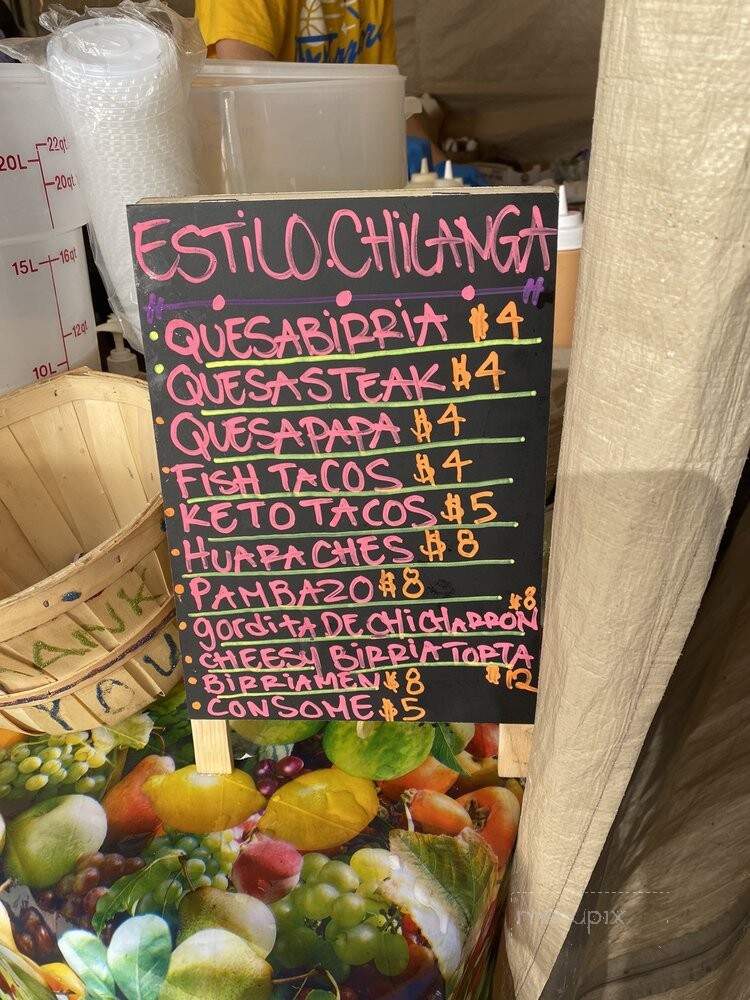 ESTILO.CHILANGA
QUESABIRRIA $4
QUESASTEAK $4
QUESAPAPA $4
FISH TACOS $4
KETO TACOS $5
HUARACHES $8
PAMBAZO $8
gorditA DE CHICHARRON $8
CHEESY BIRRIA TORTA $12
BIRRIAMEN $8
CONSOME $5
22qt
20L
20qt
15L
16qt
12qt
10L
THANK
YOU
menupix